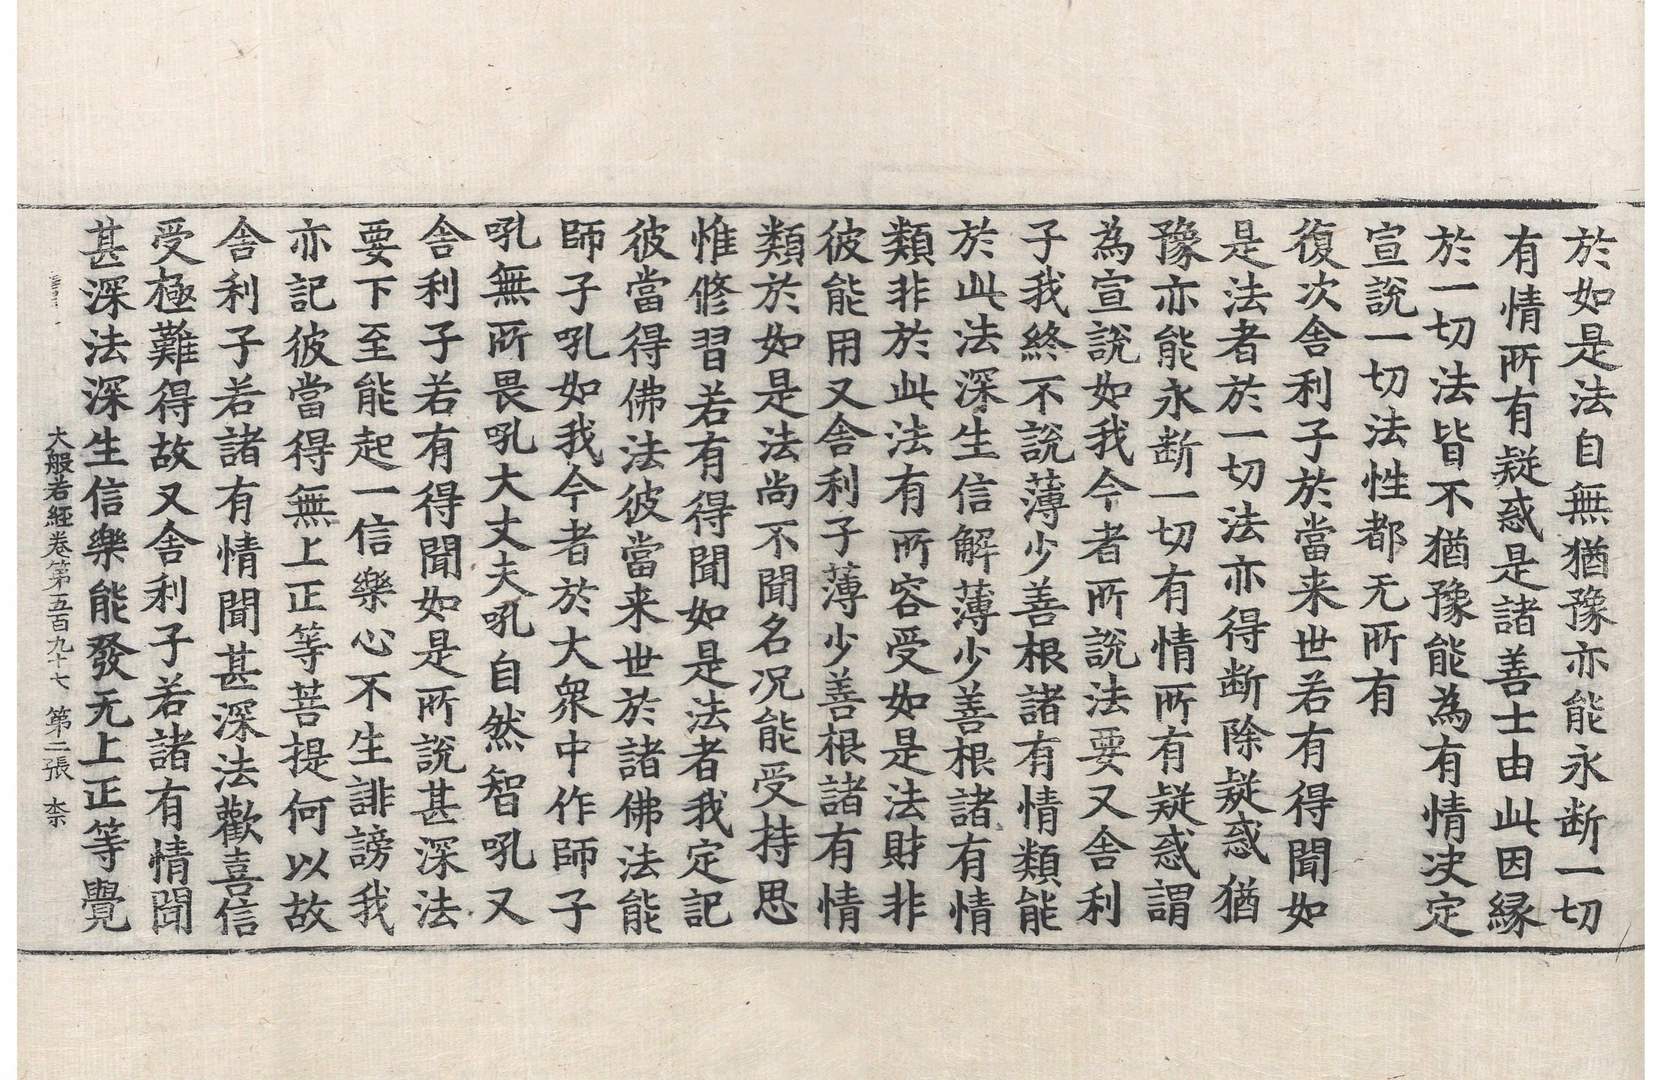 於如是法自無猶豫亦能永断一切
有情所有疑惑是諸善士由此因縁
於一切法皆不猶豫能為有情决定
宣說一切法性都无所有
復次舍利子於當来世若有得聞如
是法者於一切法亦得断除疑惑猶
豫亦能永断一切有情所有疑惑謂
為宣說如我今者所說法要又舍利
子我終不說薄少善根諸有情類能
於此法深生信解薄少善根諸有情
類非於此法有所容受如是法財非
彼能用又舍利子薄少善根諸有情
類於如是法尚不聞名况能受持思
惟修習若有得聞如是法者我定記
彼當得佛法彼當来世於諸佛法能
師子吼如我今者於大衆中作師子
吼無所畏吼大丈夫吼自然智吼又
舍利子若有得聞如是所說甚深法
要下至能起一信樂心不生誹謗我
亦記彼當得無上正等菩提何以故
舍利子若諸有情聞甚深法歡喜信
受極難得故又舍利子若諸有情聞
甚深法深生信樂能發无上正等覺
大般若經卷第五百九十七 第二張 柰